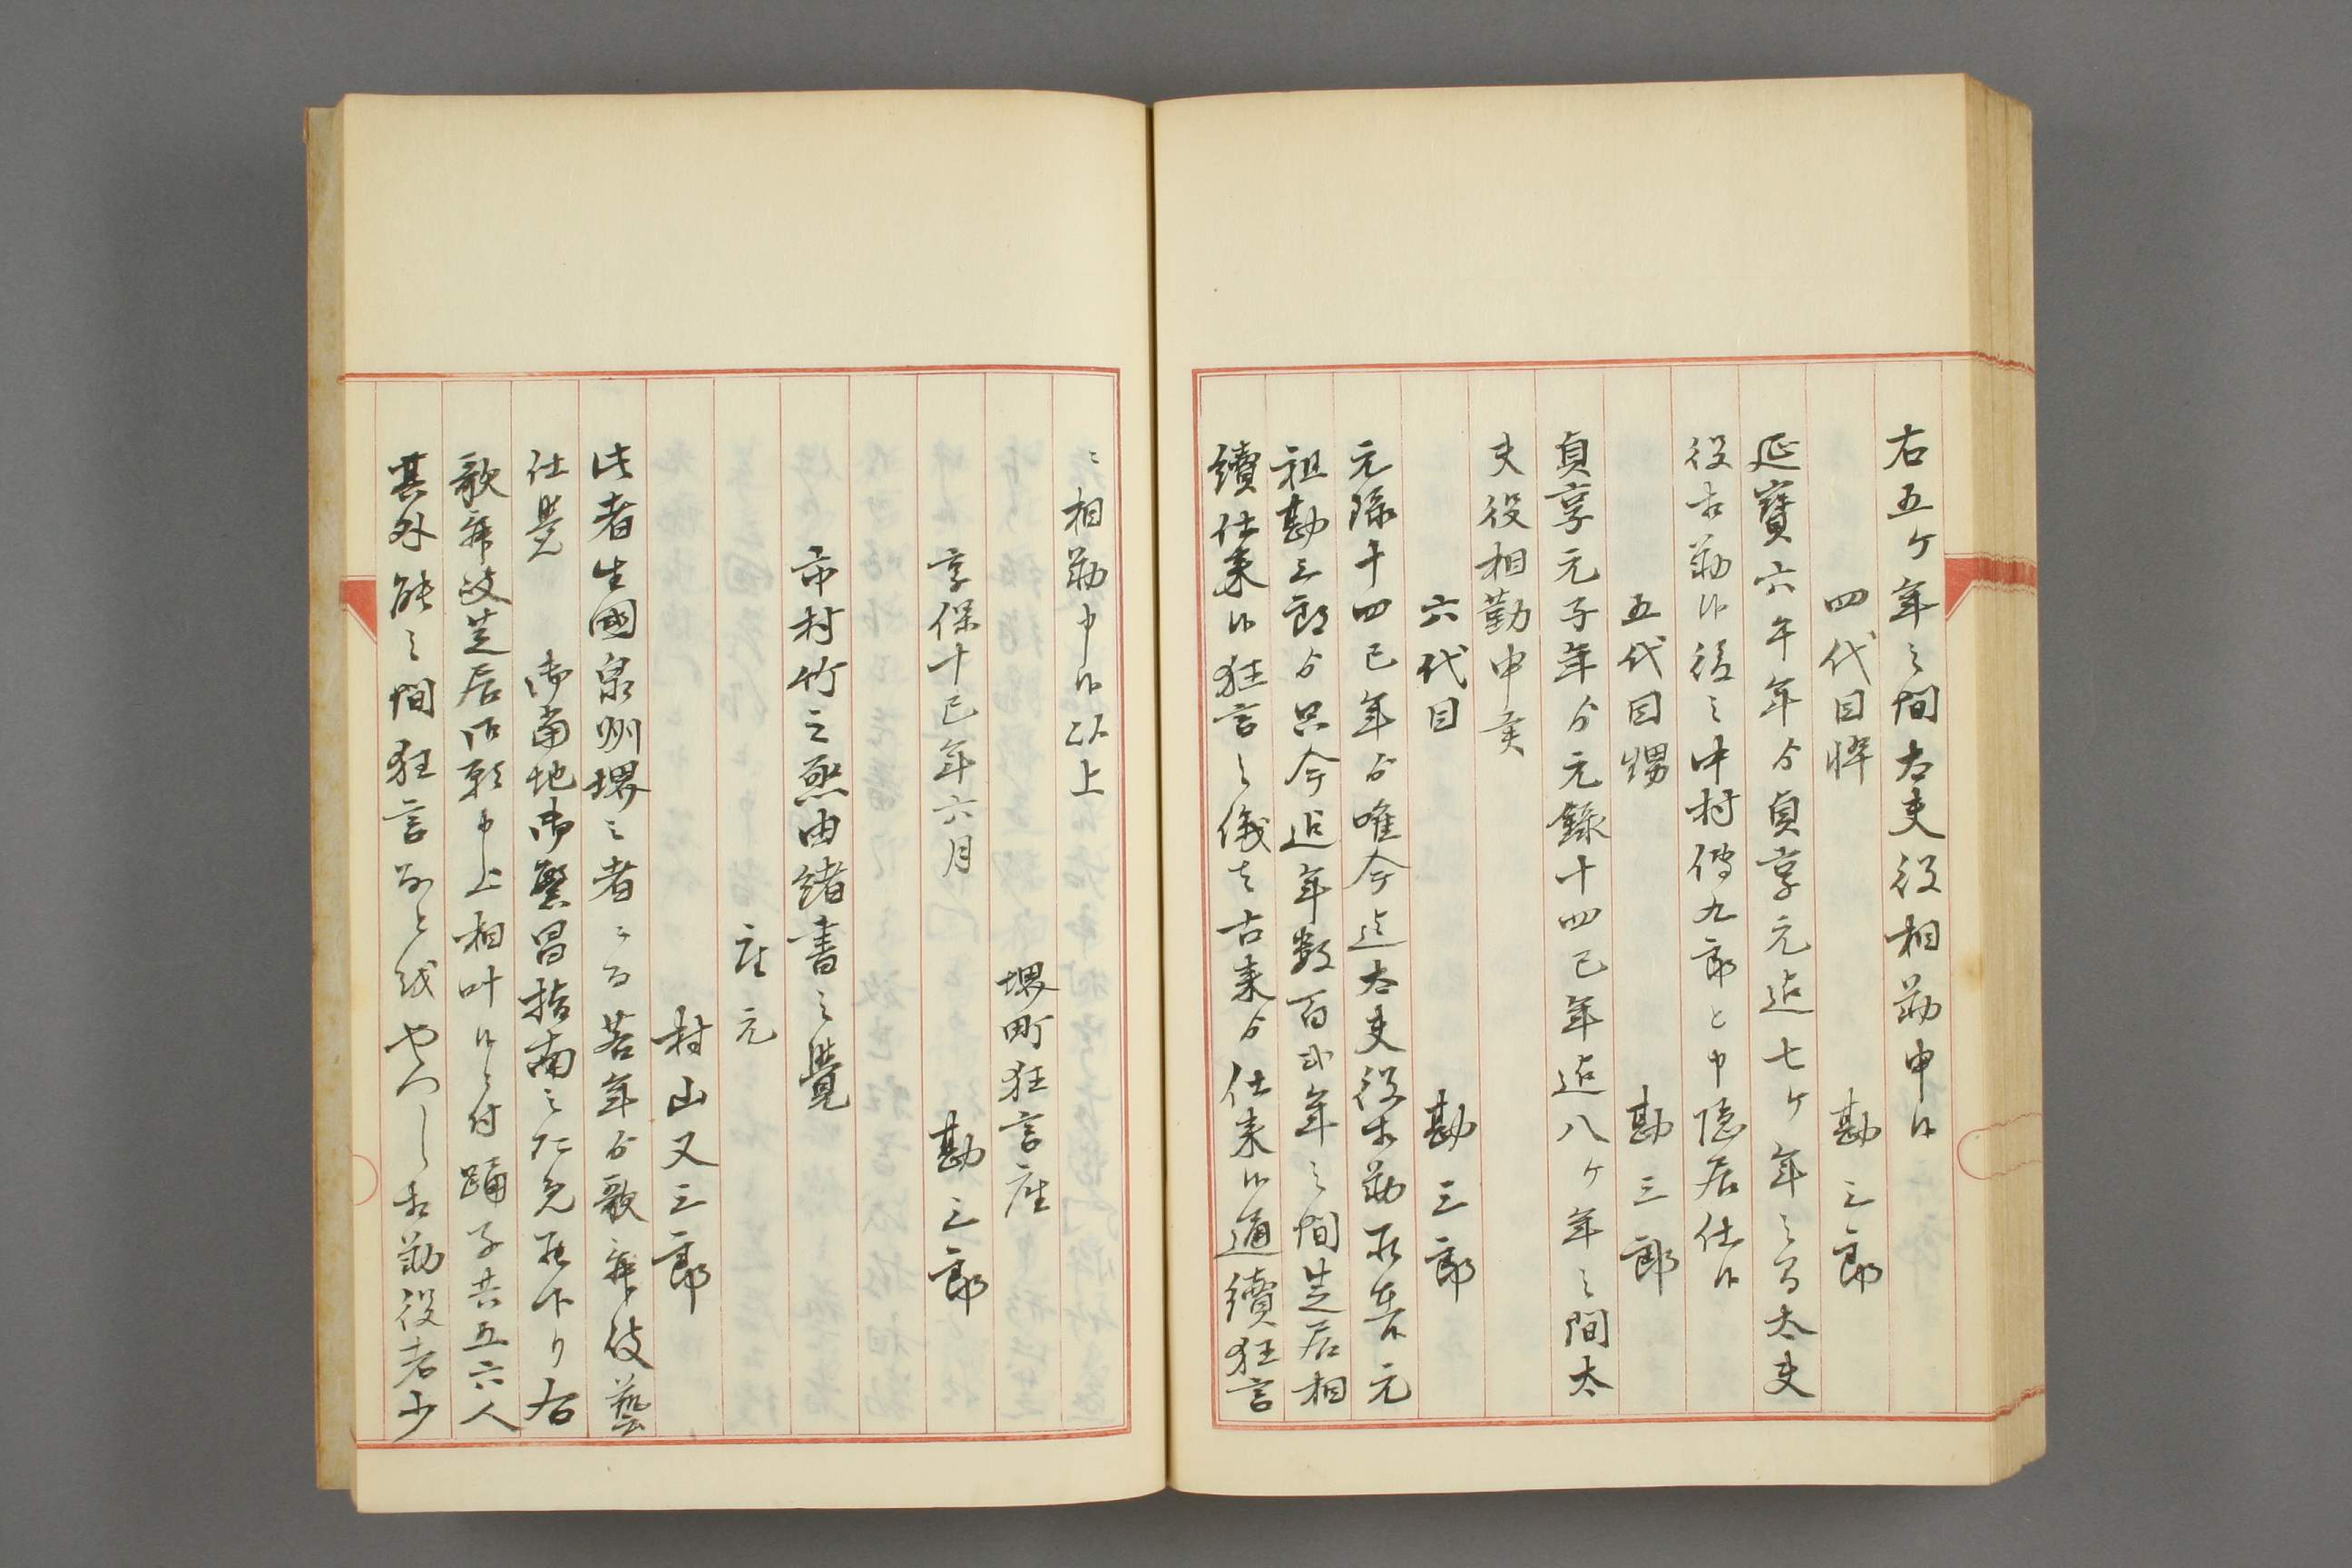 右五ケ年之間太夫役相勤申候
四代目悴　勘三郎
延寶六午年ゟ貞享元迄七ケ年之間太夫
役相勤候後ニ中村傳九郎と申隠居仕候
五代目甥　勘三郎
貞享元子年ゟ元録十四巳年迄八ケ年之間太
夫役相勤申候
六代目　勘三郎
元録十四巳年ゟ唯今迄太夫役相勤
祖勘三郎ゟ只今迄年数百弐年之間芝居相
續仕来候狂言之儀は古来ゟ仕来候通續狂言
ニ相勤申候以上
堺町狂言座
享保十巳年六月　勘三郎
市村竹之丞由緒書之覺
座元
村山又三郎
此者生國泉州堺之者ニ而若年ゟ歌舞伎藝
仕覚　御當地御繁昌指南之ため罷下り右
歌舞妓芝居御願申上相叶候ニ付踊子共五六人
其外能之間狂言なとをやつし相勤役者少